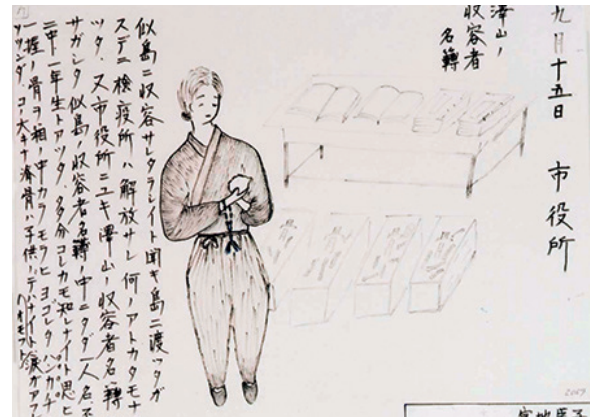 九月十五日 市役所
澤山ノ
収容者
名簿
似島ニ収容サレタラシイト聞キ島ニ渡ッタガ
ステニ検疫所ハ解放サレ何ノアトカタモナ
ツタ、又市役所ニユキ澤山ノ収容者名簿
サガシタ似島ノ収容者名簿ノ中ニタダ一人名不
二中一年生トアツタ、多分コレカモ知レナイト思ヒ
一握ノ骨ヲ箱ノ中カラモラヒヨゴレタハンカチ
ツツンダ、コノ大キナ骨ハ子供ノデハナイト
2059
宮地臣子